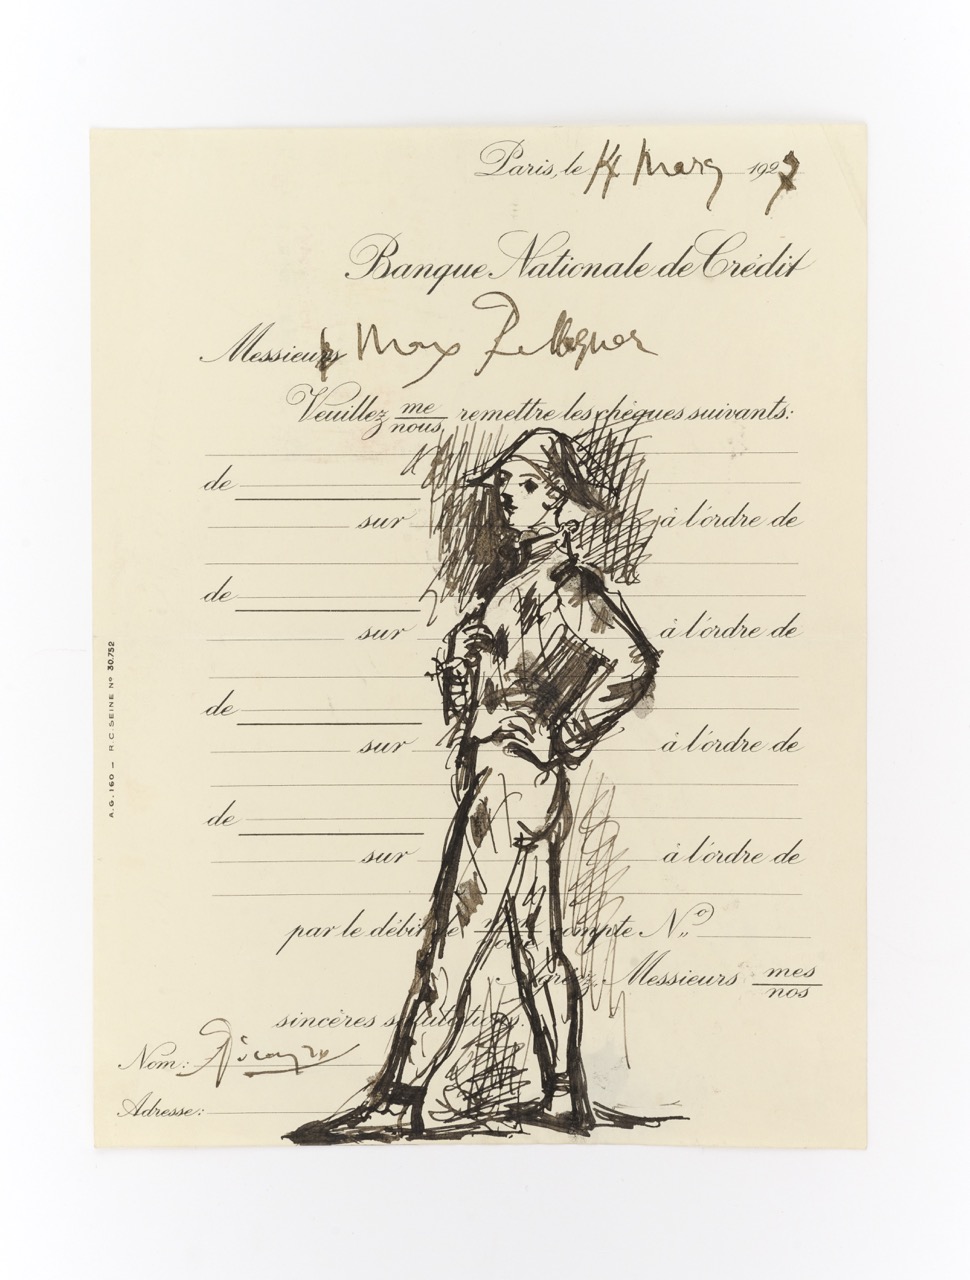 Paris, le 14 Mars 1927
Banque Nationale de Crédit
Messieurs Max Pellequer
Veuillez me remettre les chèques suivants:
nous,
de
sur à l'ordre de
de
sur à l'ordre de
de
sur à l'ordre de
de
sur à l'ordre de
par le débit de compte N°
Agréez, Messieurs mes
nos
sincères salutations.
Nom: Picasso
Adresse:
A.G. 160 — R.C. SEINE N° 30.752